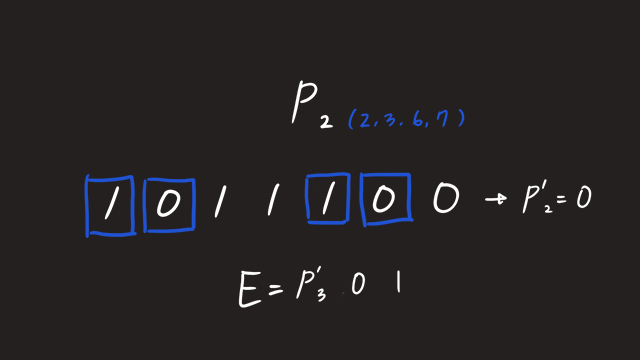 P₂ (2,3,6,7)
1 0 1 1 1 0 0 → P'₂ = 0
E = P'₃ 0 1